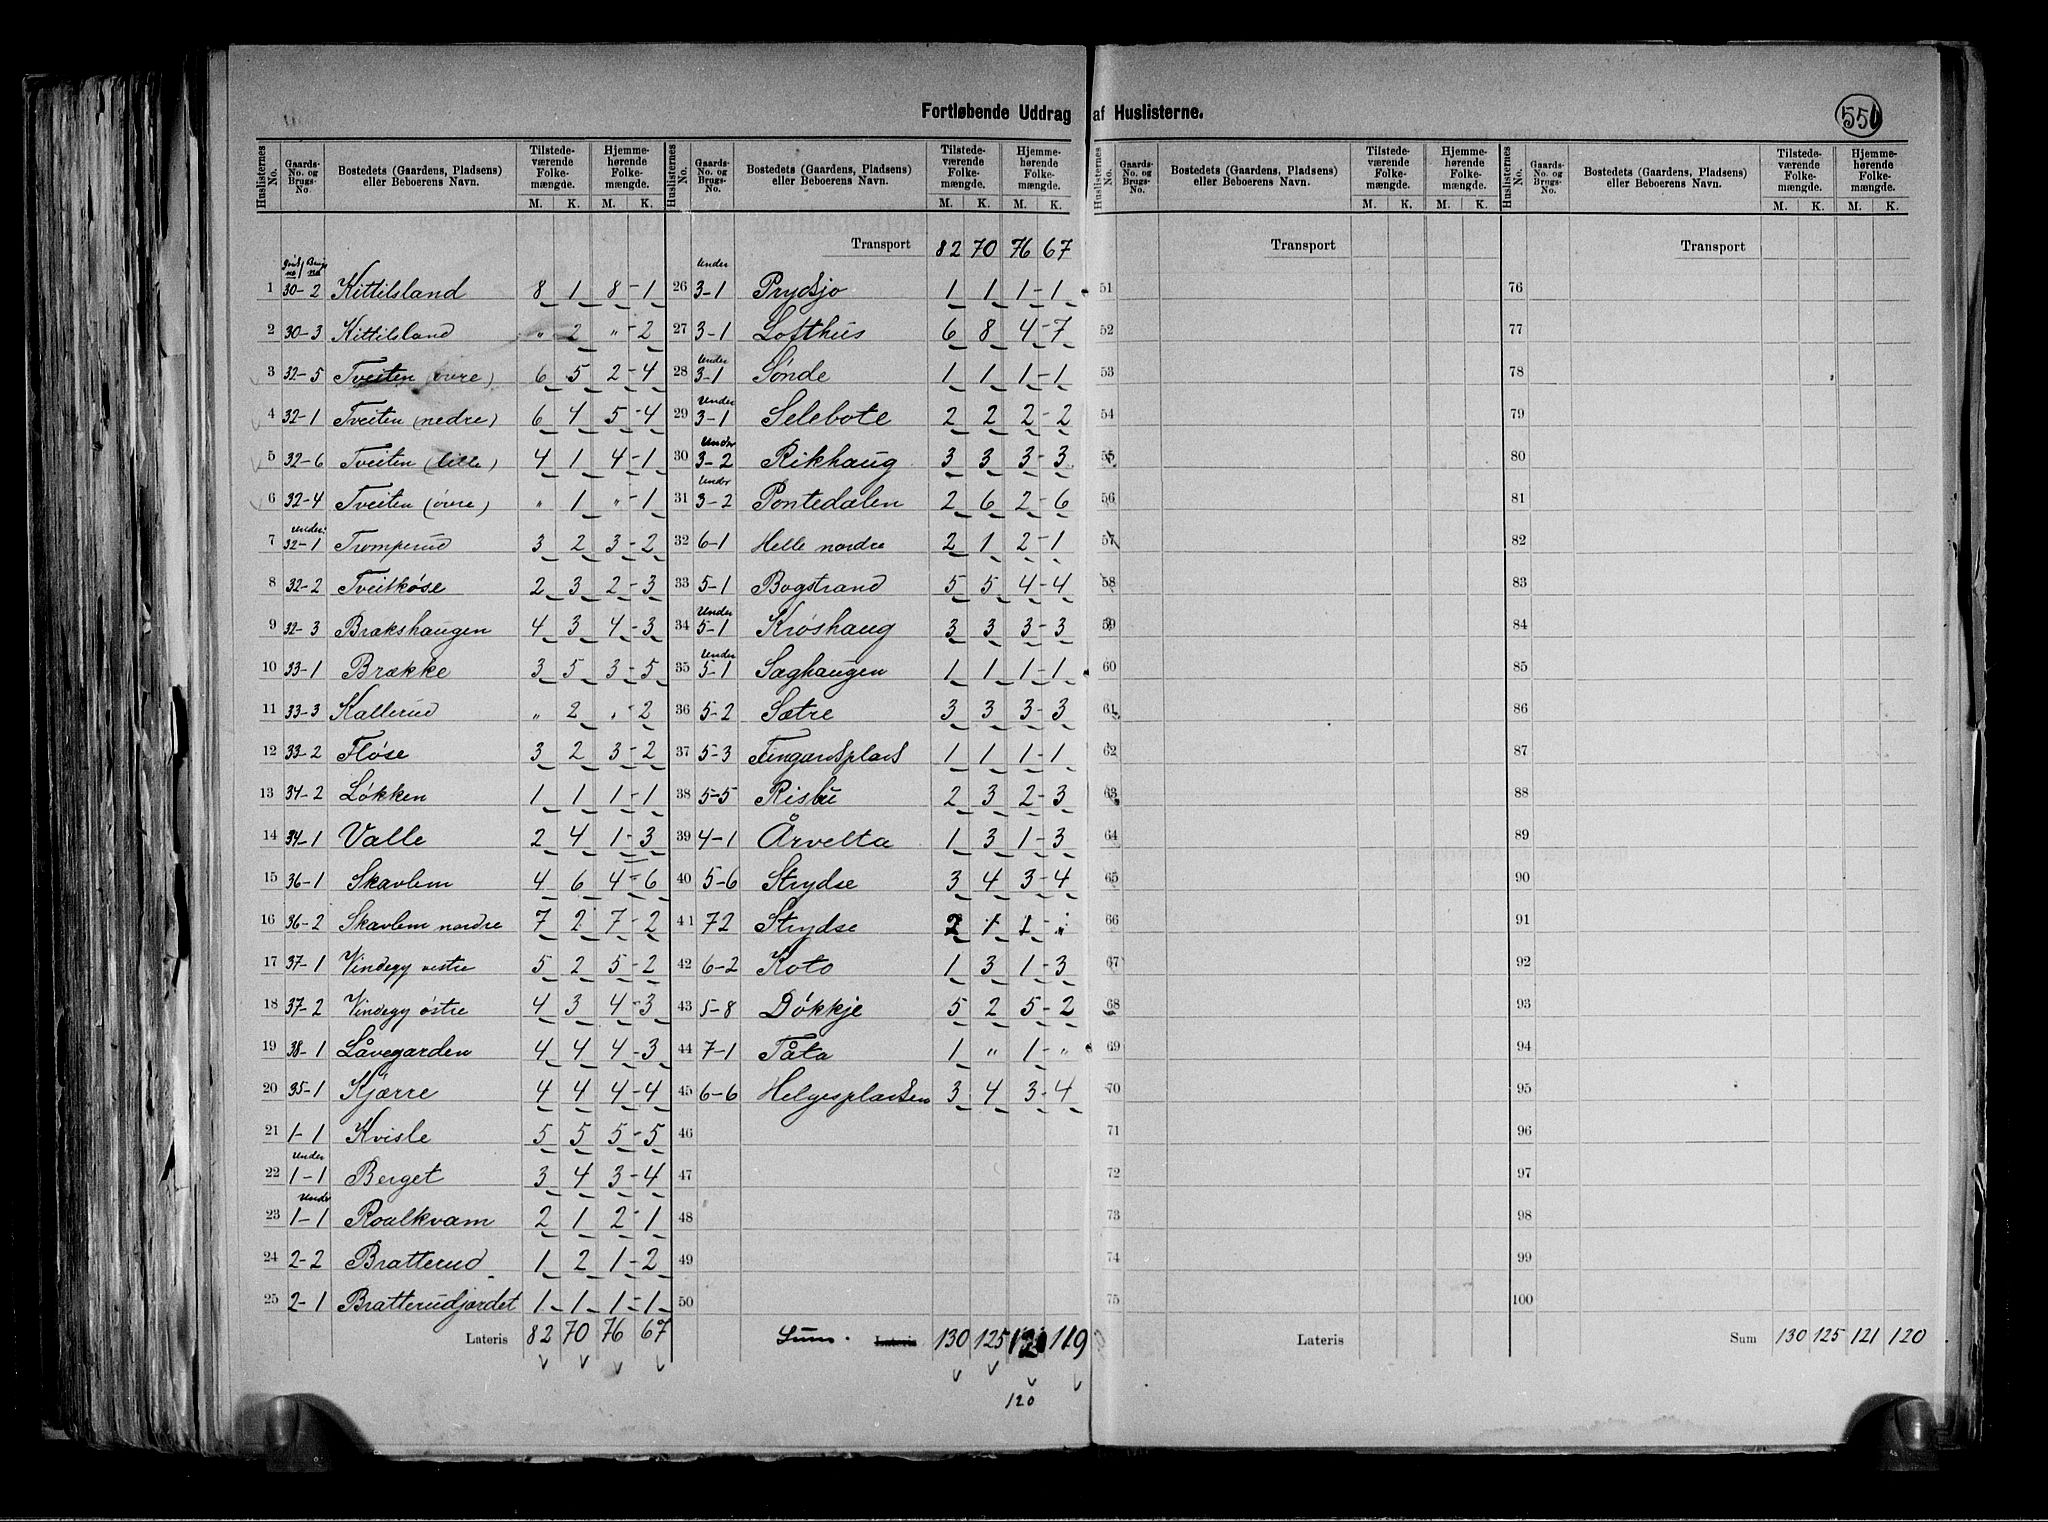 Fortløbende Uddrag af Huslisterne.
550
Huslisternes No. Gaards-No. og Brugs-No. Bostedets (Gaardens, Pladsens) eller Beboerens Navn. Tilstedeværende Folkemængde. Hjemmehørende Folkemængde. M. K. M. K.
Huslisternes No. Gaards-No. og Brugs-No. Bostedets (Gaardens, Pladsens) eller Beboerens Navn. Tilstedeværende Folkemængde. Hjemmehørende Folkemængde. M. K. M. K.
Brugs no
1 30-2 Kittilsland 8 1 8-1
2 30-3 Kittilsland " 2 "-2
3 32-5 Tveiten (øvre) 6 5 2-4
4 32-1 Tveiten (nedre) 6 4 5-4
5 32-6 Tveiten (lille) 4 1 4-1
6 32-4 Tveiten (øvre) " 1 "-1
7 Under 32-1 Tromperud 3 2 3-2
8 32-2 Tveitkøse 2 3 2-3
9 32-3 Brækshaugen 4 3 4-3
10 33-1 Brække 3 5 3-5
11 33-3 Kallerud " 2 "-2
12 33-2 Fløse 3 2 3-2
13 34-2 Løkken 1 1 1-1
14 34-1 Valle 2 4 1-3
15 36-1 Skavlem 4 6 4-6
16 36-2 Skavlem nordre 7 2 7-2
17 37-1 Vindegg vestre 5 2 5-2
18 37-2 Vindegg østre 4 3 4-3
19 38-1 Låvegarden 4 4 4-3
20 35-1 Kjærre 4 4 4-4
21 1-1 Kvisle 5 5 5-5
22 Under 1-1 Berget 3 4 3-4
23 Under 1-1 Roalkvam 2 1 2-1
24 2-2 Bratterud 1 2 1-2
25 2-1 Bratterudjordet 1-1-1-1
Lateris 82 70 76 67
Transport 82 70 76 67
26 Under 3-1 Prydsjo 1 1 1-1
27 3-1 Lofthus 6 8 4-7
28 Under 3-1 Sønde 1 1 1-1
29 Under 3-1 Selebote 2 2 2-2
30 Under 3-2 Rikhaug 3 3 3-3
31 Under 3-2 Pontedalen 2 6 2-6
32 6-1 Helle nordre 2 1 2-1
33 5-1 Bogstrand 5 5 4-4
34 Under 5-1 Krøshaug 3 3 3-3
35 Under 5-1 Saghaugen 1 1 1-1
36 5-2 Sætre 3 3 3-3
37 5-3 Fingardsplads 1 1 1-1
38 5-5 Risbu 2 3 2-3
39 4-1 Årvelta 1 3 1-3
40 5-6 Strydse 3 4 3-4
41 72 Strydse 2 1 1-"
42 6-2 Koto 1 3 1-3
43 5-8 Døkkje 5 2 5-2
44 7-1 Tåta 1 " 1-"
45 6-6 Helgespladsen 3 4 3-4
46
47
48
49
50
Sum. Lateris 130 125 119
120
Huslisternes No. Gaards-No. og Brugs-No. Bostedets (Gaardens, Pladsens) eller Beboerens Navn. Tilstedeværende Folkemængde. Hjemmehørende Folkemængde. M. K. M. K.
Transport
51
52
53
54
55
56
57
58
59
60
61
62
63
64
65
66
67
68
69
70
71
72
73
74
75
Lateris
Huslisternes No. Gaards-No. og Brugs-No. Bostedets (Gaardens, Pladsens) eller Beboerens Navn. Tilstedeværende Folkemængde. Hjemmehørende Folkemængde. M. K. M. K.
Transport
76
77
78
79
80
81
82
83
84
85
86
87
88
89
90
91
92
93
94
95
96
97
98
99
100
Sum 130 125 121 120